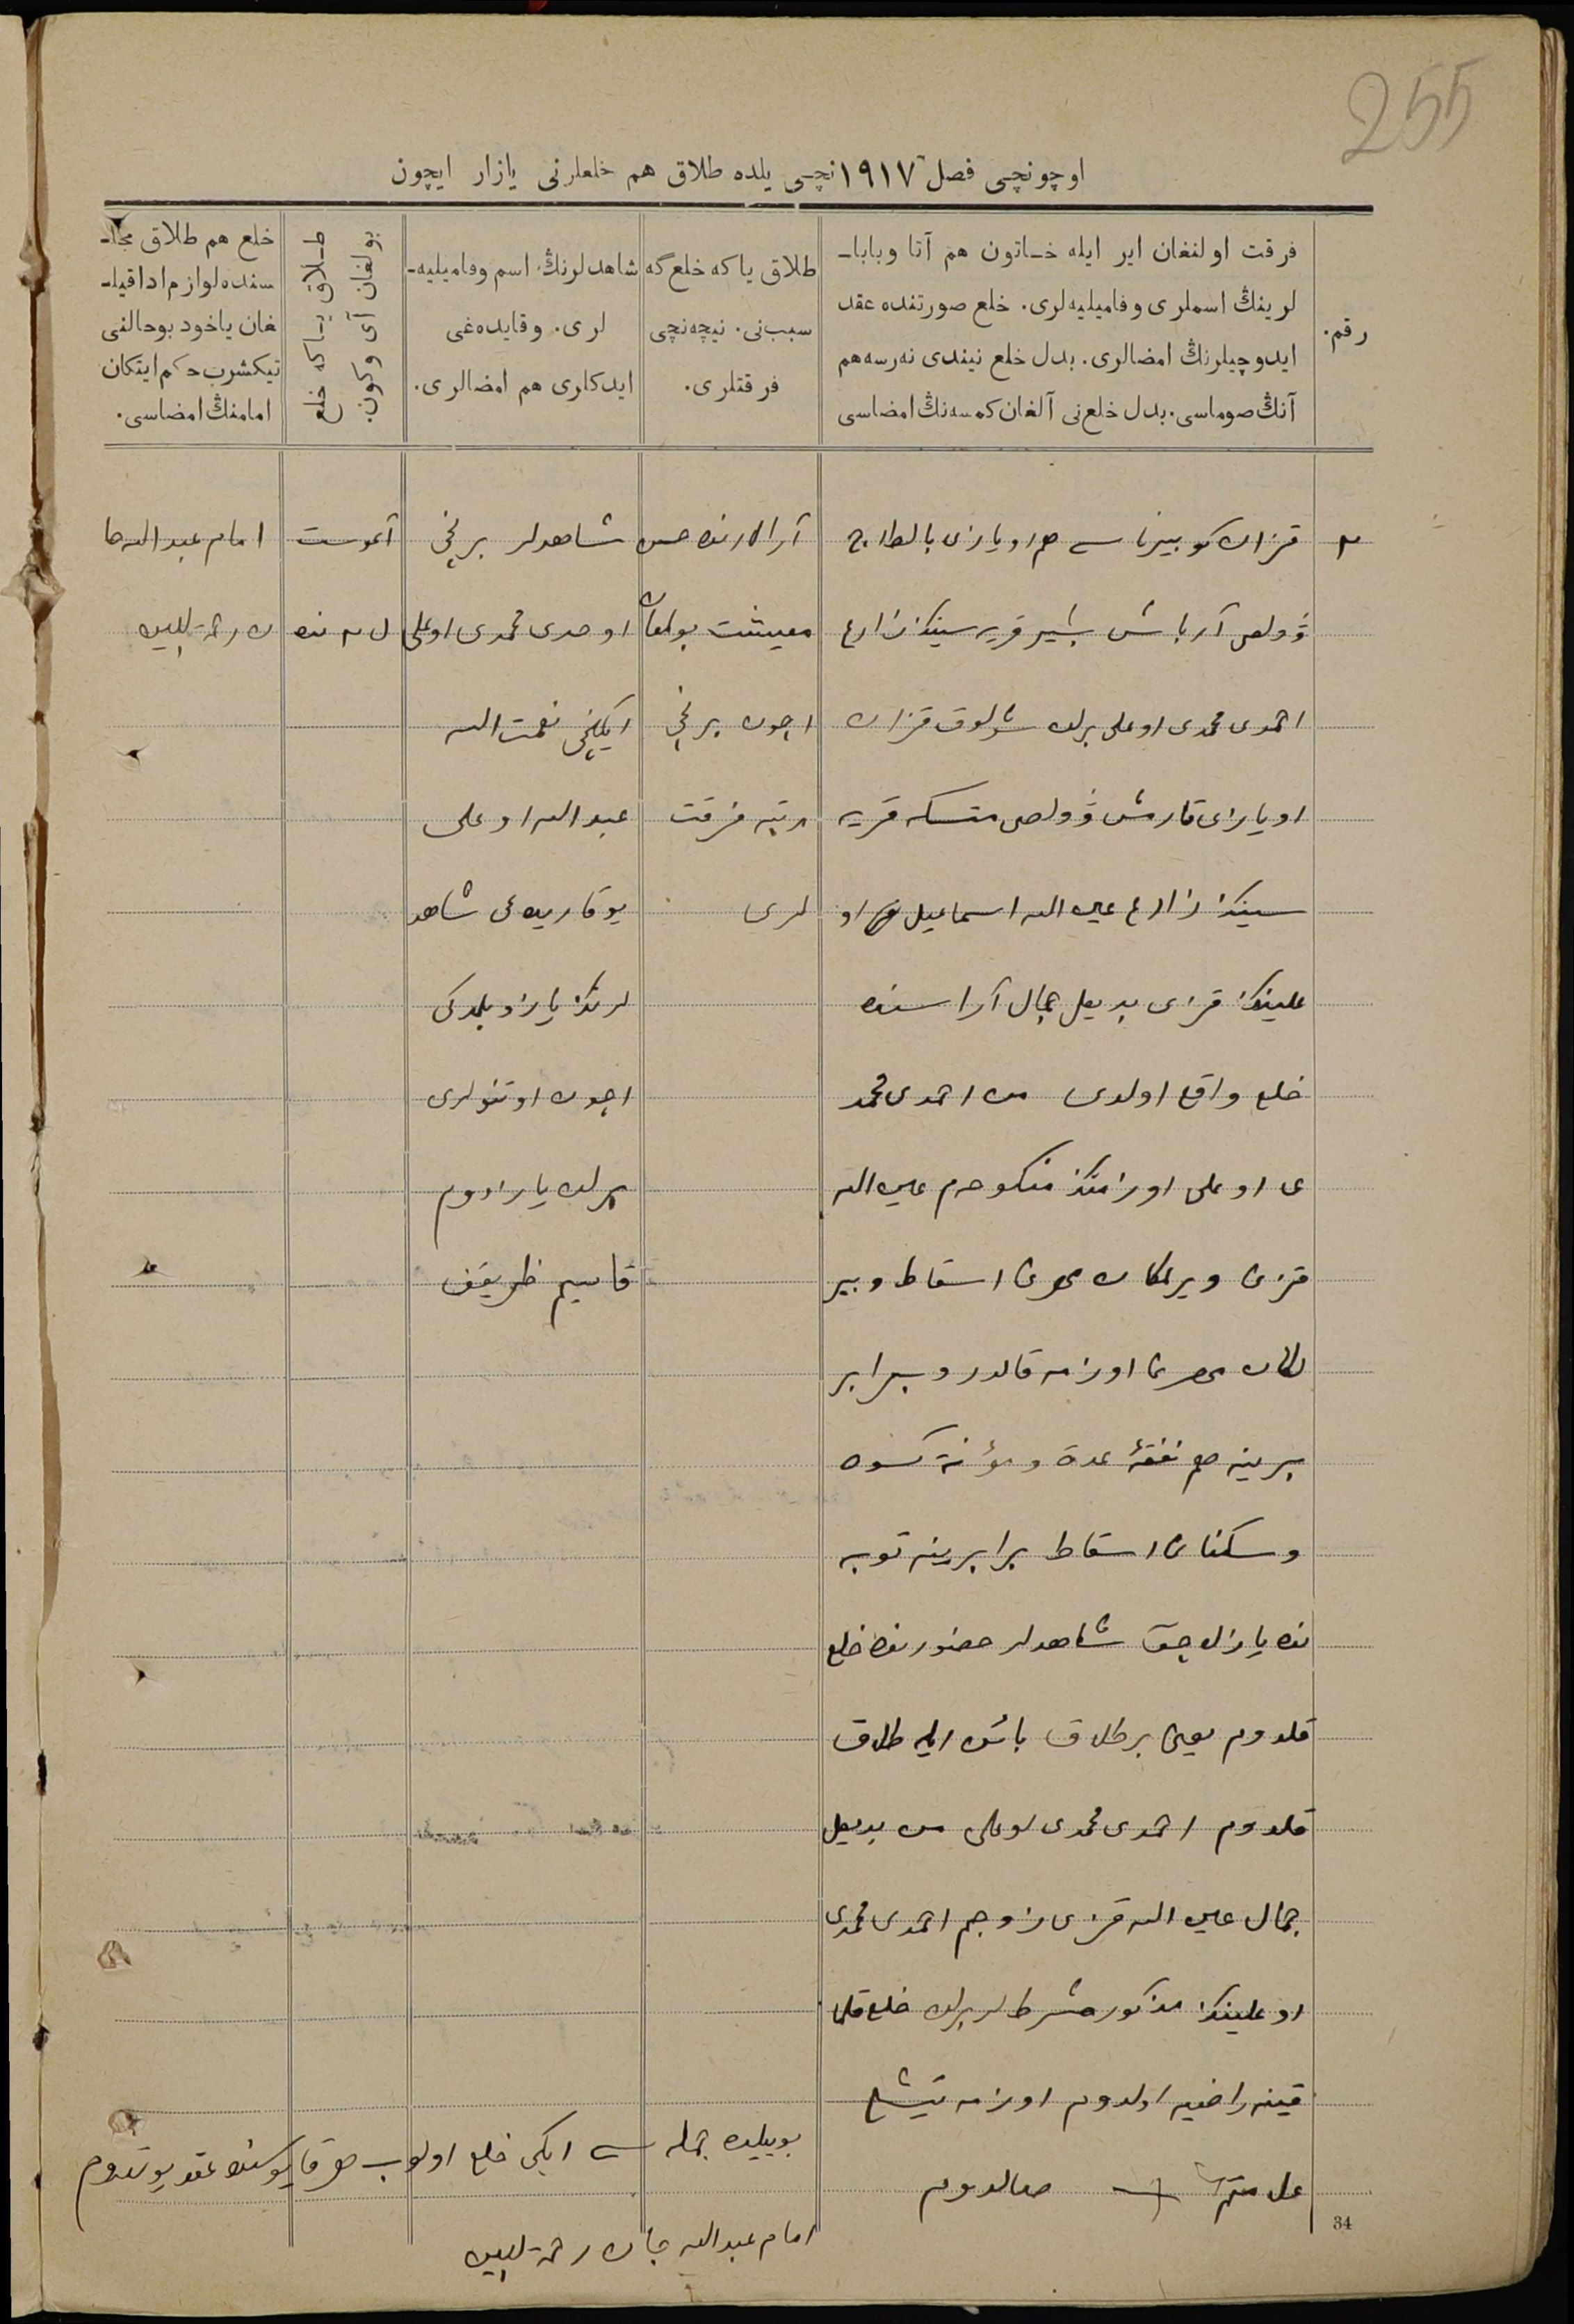 255
اوچونچی فصل ۱۹۱۷ نچی یلده طلاق هم خلعلرنی یازار ایچون
رقم.
فرقت اولنغان ایر ایله خاتون هم آتا وبابا-
لرینڭ اسملری وفامیلیه‌لری. خلع صورتنده عقد
ایدوچیلرنڭ امضالری. بدل خلع نیندی نه‌رسه هم
آنڭ صوماسی. بدل خلع‌نی آلغان کمسه‌نڭ امضاسی
طلاق یا که خلع گه
سبب‌نی. نیچه‌نچی
فرقتلری.
شاهدلرنڭ اسم وفامیلیه-
لری. وقایده‌غی
ایدکلری هم امضالری.
طلاق یا که خلع
بولغان آی وکون.
خلع هم طلاق مجا-
سنده لوازم ادا قیل-
غان یاخود بوحالنی
تیکشرب حکم ایتکان
امامنڭ امضاسی.
۲
قزان کوبیرناسی هم اویازی بالطاچ
ۋولص آرباش بشیر قریه سینڭ زارع
احمدی محمدی اوغلی برلن شولوق قزان
اویازی قارمش ۋولص متسکه قریه
سینڭ زارع عین الله اسماعیل او
غلینڭ قزی بدیعل جمال آراسنده
خلع واقع اولدی من احمدی محمد
ی اوغلی اوزمنڭ منکوحه‌م عین الله
قزی ویرلکان مهرنی اسقاط وبیر
لکان مهرنی اوزمه قالدرو برابر
برینه هم نفقهٔ عدة ومؤنة کسوه
وسکنانی اسقاط برابرینه توبه
نده یازلاچق شاهدلر حضورنده خلع
قلدوم یعنی بر طلاق بائن ایله طلاق
قلدوم احمدی محمدی اوغلی من بدیعل
جمال عین الله قزی زوجم احمدی محمدی
اوغلینڭ مذکور شرطلر برلن خلع قلما
قینه راضیه اولدوم اوزمه تیشلی
مالدوم
آرالارنده حسن
معیشت بولمغان
اچون برنچی
مرتبه فرقت
لری
شاهدلر برنچی
اوحدی محمدی اوغلی
ایکنچی نعمت الله
عبد الله اوغلی
یوقاریده‌غی شاهد
لرنڭ یازو بلمدکی
اچون اوتنولری
برلن یازدوم
قاسیم ظریفف
آغوست
امام عبد الله جا
ن رحمة اللین
بو ییلده جمله سی ایکی خلع اولوب هر قایوسنده عقد یوتدوم
امام عبد الله جان رحمة اللین
34